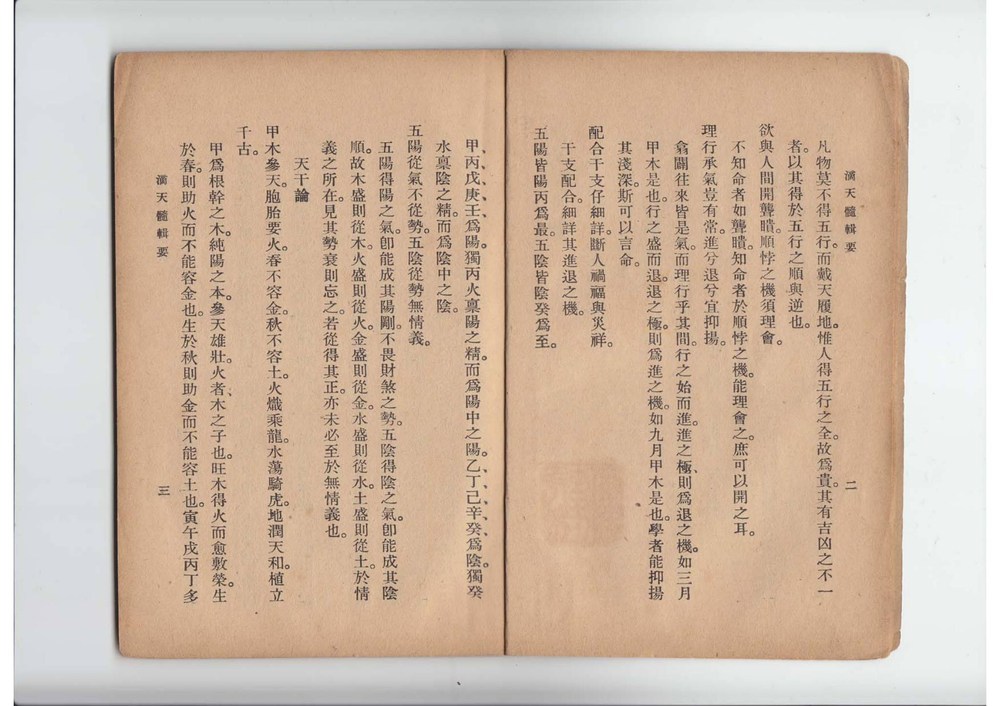 滴天髓輯要
二
凡物莫不得五行。而戴天履地。惟人得五行之全。故爲貴。其有吉凶之不一
者。以其得於五行之順與逆也。
欲與人間開聾聵。順悖之機須理會。
不知命者如聾聵。知命者於順悖之機。能理會之。庶可以開之耳。
理行承氣豈有常。進兮退兮宜抑揚。
翕闢往來皆是氣。而理行乎其間。行之始而進。進之極、則爲退之機。如三月
甲木是也。行之盛而退。退之極。則爲進之機。如九月甲木是也。學者能抑揚
其淺深。斯可以言命。
配合干支仔細詳。斷人禍福與災祥。
干支配合。細詳其進退之機。
五陽皆陽丙爲最。五陰皆陰癸爲至。
甲、丙、戊、庚、壬、爲陽。獨丙火稟陽之精。而爲陽中之陽。乙、丁、己、辛、癸、爲陰。獨癸
水稟陰之精。而爲陰中之陰。
五陽從氣不從勢。五陰從勢無情義。
五陽得陽之氣。卽能成其陽剛。不畏財煞之勢。五陰得陰之氣。卽能成其陰
順。故木盛則從木。火盛則從火。金盛則從金。水盛則從水。土盛則從土。於情
義之所在。見其勢衰則忘之。若從得其正。亦未必至於無情義也。
天干論
甲木參天。胞胎要火。春不容金。秋不容土。火熾乘龍。水蕩騎虎。地潤天和。植立
千古。
甲爲根幹之木。純陽之本。參天雄壯。火者、木之子也。旺木得火而愈敷榮。生
於春。則助火而不能容金也。生於秋。則助金而不能容土也。寅午戌丙丁多
滴天髓輯要
三